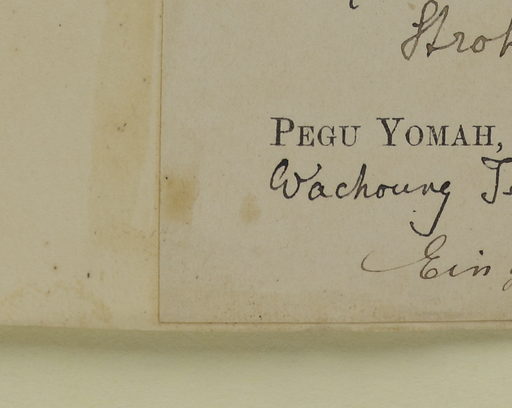 Stro
PEGU YOMAH,
Wachoung
Ein